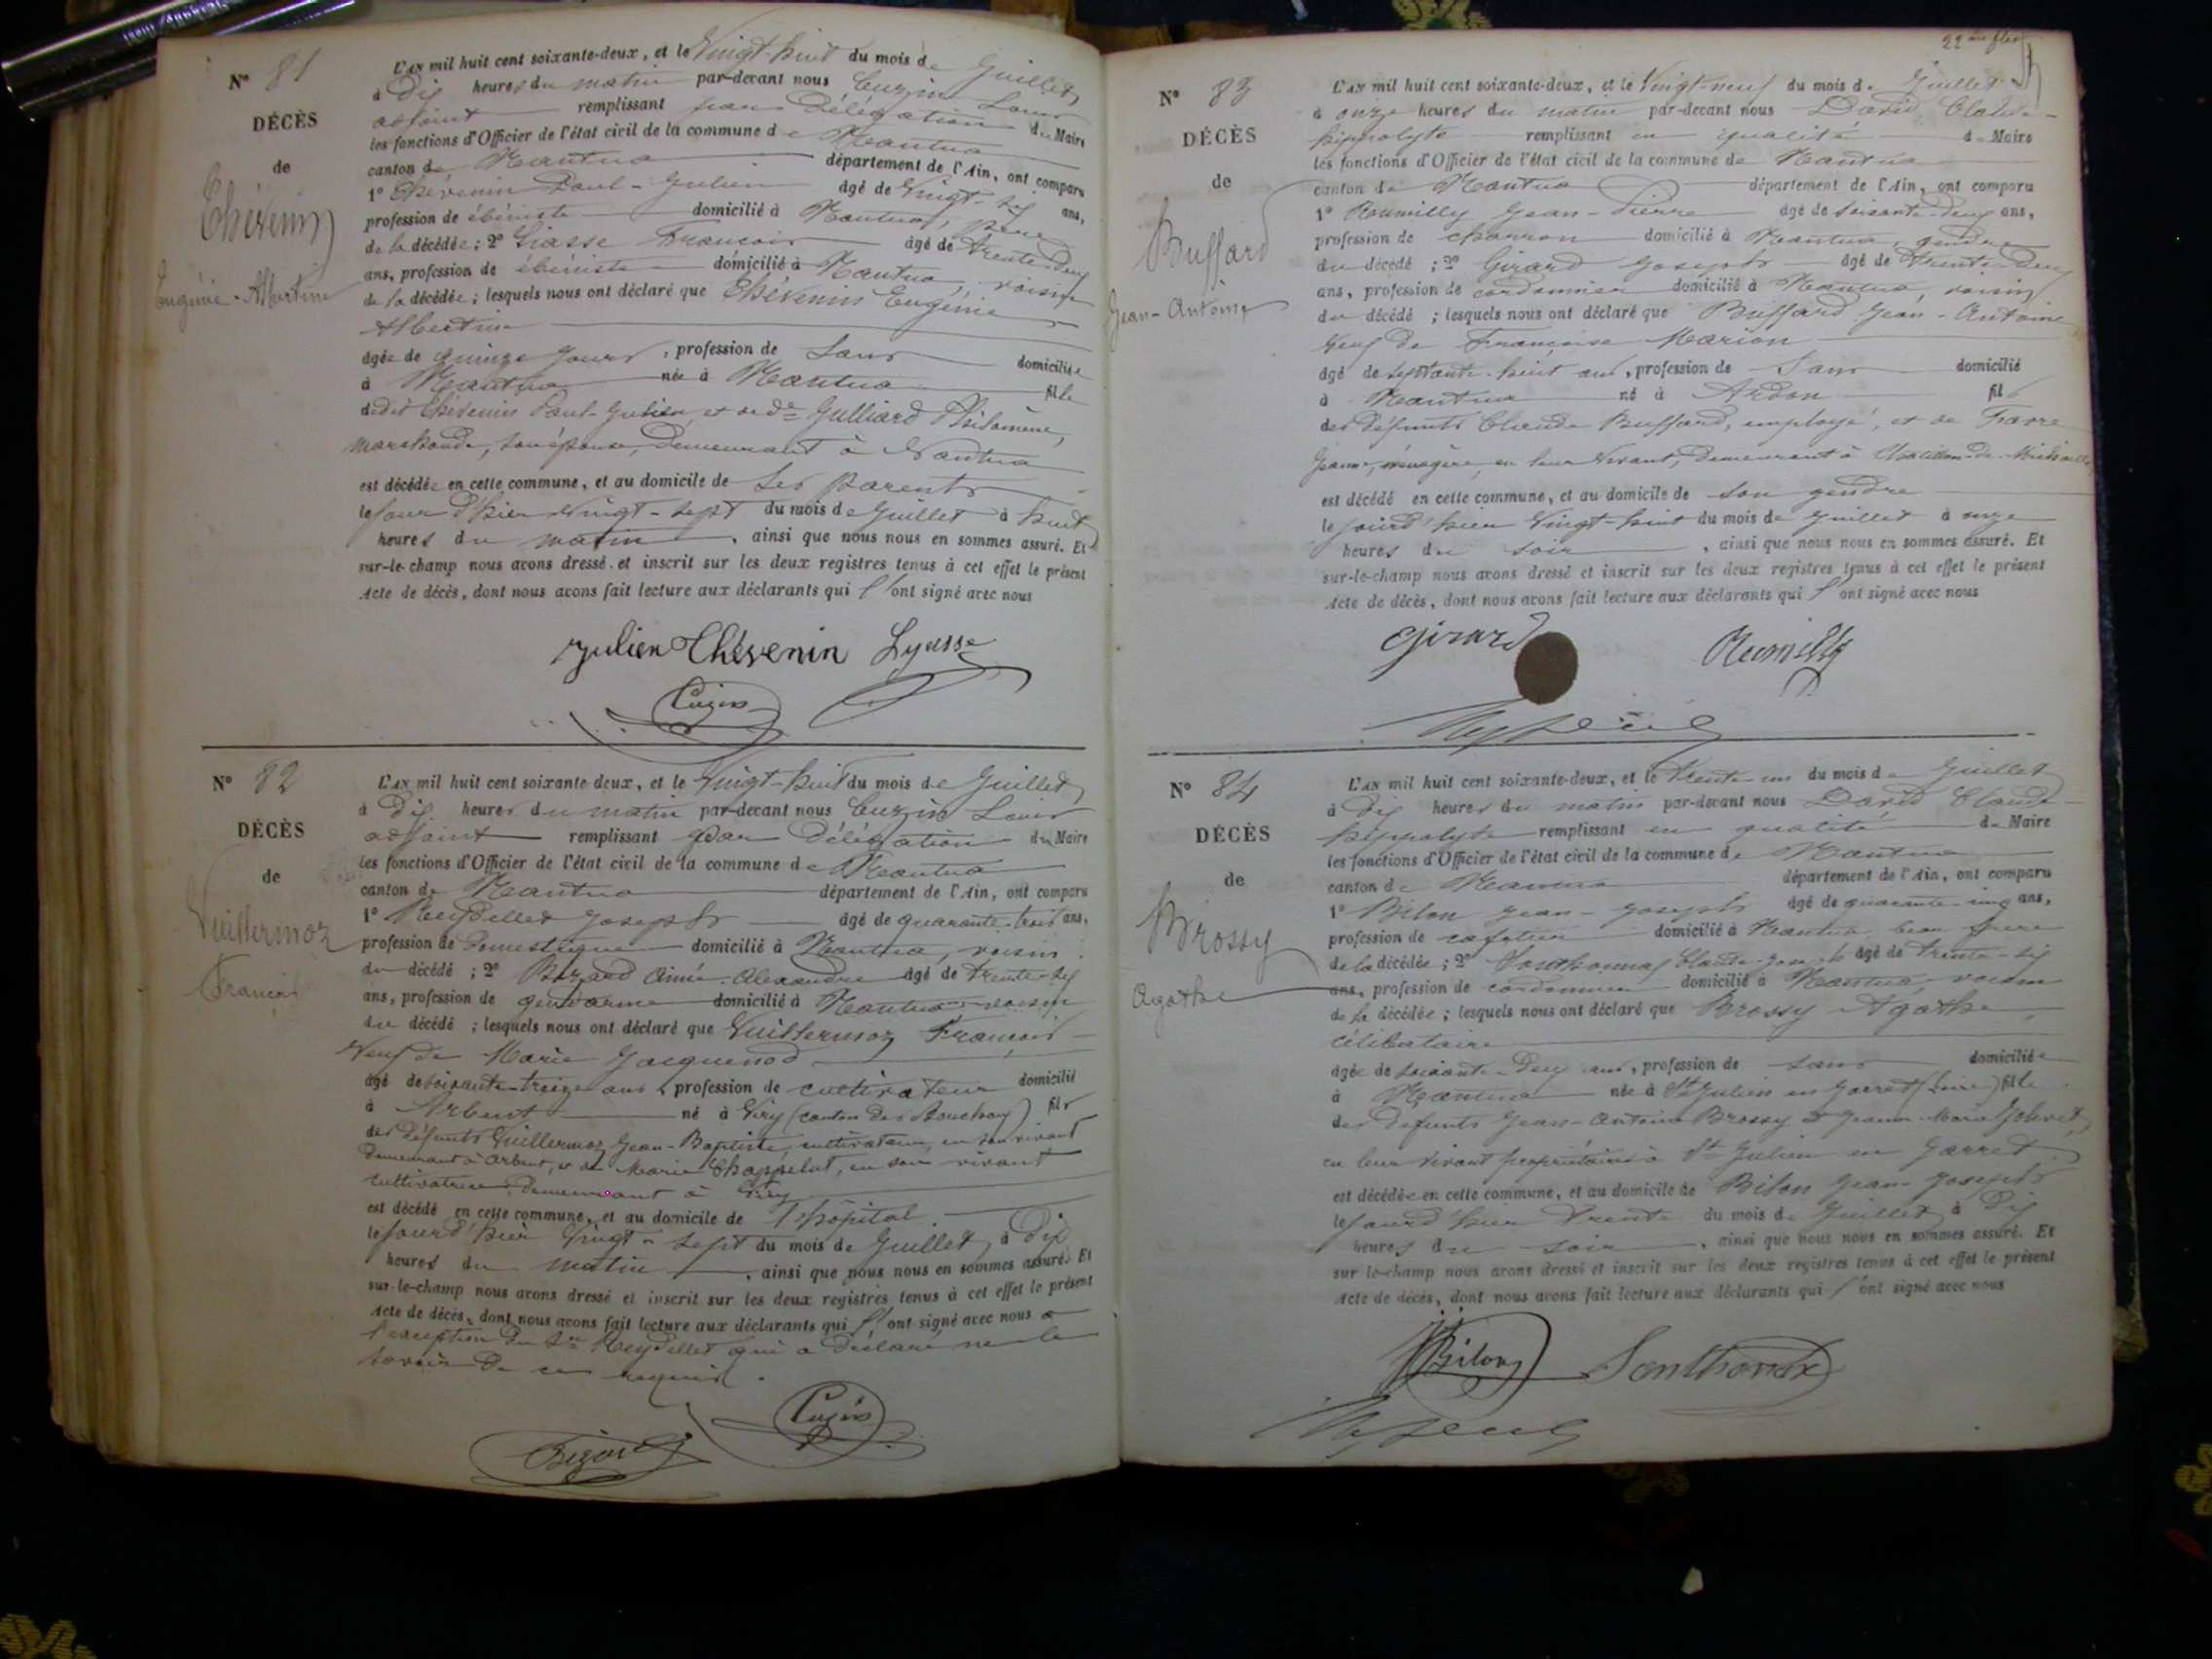 N° 81
DÉCÈS
de
Thévenin
Eugénie-Albertine
L'AN mil huit cent soixante-deux, et le Vingt-huit du mois de Juillet
à Dix heures du matin par-devant nous Cuzin Louis
adjoint remplissant par Délégation du Maire
les fonctions d'Officier de l'état civil de la commune de Nantua
canton de Nantua département de l'Ain, ont comparu
1° Thévenin Paul-Julien âgé de Vingt-six ans,
profession de ébéniste domicilié à Nantua, père
de la décédée; 2° Liasse François âgé de trente-deux
ans, profession de ébéniste domicilié à Nantua, voisin
de la décédée; lesquels nous ont déclaré que Thévenin Eugénie
Albertine
âgée de quinze jours, profession de Sans domiciliée
à Nantua née à Nantua fille
de dit Thévenin Paul-Julien et de de Gulliard Philomène,
marchande, son épouse, demeurant à Nantua
est décédée en cette commune, et au domicile de Ses parents
le jour d'hier Vingt-sept du mois de Juillet à huit
heures du matin, ainsi que nous nous en sommes assuré. Et
sur-le-champ nous avons dressé et inscrit sur les deux registres tenus à cet effet le présent
Acte de décès, dont nous avons fait lecture aux déclarants qui l'ont signé avec nous
Julien Thévenin Lyasse
Cuzin
N° 82
DÉCÈS
de
Vuillermoz
François
L'AN mil huit cent soixante-deux, et le Vingt-huit du mois de Juillet
à Dix heures du matin par-devant nous Cuzin Louis
adjoint remplissant par Délégation du Maire
les fonctions d'Officier de l'état civil de la commune de Nantua
canton de Nantua département de l'Ain, ont comparu
1° Reydellet Joseph âgé de quarante-trois ans,
profession de Domestique domicilié à Nantua, voisin
du décédé; 2° Aimé-Alexandre âgé de trente-six
ans, profession de gendarme domicilié à Nantua voisin
du décédé; lesquels nous ont déclaré que Vuillermoz François
Veuf de Marie Jacquenod
âgé de soixante-treize ans, profession de cultivateur domicilié
à Arbent né à Viry (canton des Bouchoux) fils
des défunts Vuillermoz Jean-Baptiste, cultivateur, en son vivant
Demeurant à Arbent, et de Marie Chappelut, en son vivant
cultivatrice, demeurant à Viry
est décédé en cette commune, et au domicile de l'hôpital
le jourd'hier Vingt-sept du mois de Juillet, à Dix
heures du matin, ainsi que nous nous en sommes assuré. Et
sur-le-champ nous avons dressé et inscrit sur les deux registres tenus à cet effet le présent
Acte de décès, dont nous avons fait lecture aux déclarants qui l'ont signé avec nous à
l'exception du Sr Reydellet qui a déclaré ne le
savoir de ce requis.
Cuzin
N° 83
DÉCÈS
de
Buffard
Jean-Antoine
L'AN mil huit cent soixante-deux, et le Vingt-neuf du mois de Juillet
à onze heures du matin par-devant nous David Claude-
hippolyte remplissant en qualité de Maire
les fonctions d'Officier de l'état civil de la commune de Nantua
canton de Nantua département de l'Ain, ont comparu
1° Roumilly Jean-Pierre âgé de soixante-deux ans,
profession de charron domicilié à Nantua, gendre
du décédé; 2° Girard Joseph âgé de trente-deux
ans, profession de cordonnier domicilié à Nantua, voisin
du décédé; lesquels nous ont déclaré que Buffard Jean-Antoine
Veuf de Françoise Marion
âgé de septante-huit ans, profession de Sans domicilié
à Nantua né à Ardon fils
des défunts Claude Buffard, employé, et de Favre
Jeanne, ménagère, en leur Vivant, demeurant à Chatillon-de-Michaille
est décédé en cette commune, et au domicile de son gendre
le jourd'hier Vingt-huit du mois de Juillet à onze
heures du soir, ainsi que nous nous en sommes assuré. Et
sur-le-champ nous avons dressé et inscrit sur les deux registres tenus à cet effet le présent
Acte de décès, dont nous avons fait lecture aux déclarants qui l'ont signé avec nous
Girard Roumilly
N° 84
DÉCÈS
de
Brossy
Agathe
L'AN mil huit cent soixante-deux, et le trente-un du mois de Juillet
à Dix heures du matin par-devant nous David Claude-
hippolyte remplissant en qualité de Maire
les fonctions d'Officier de l'état civil de la commune de Nantua
canton de Nantua département de l'Ain, ont comparu
1° Bilon Jean-Joseph âgé de quarante-cinq ans,
profession de cafetier domicilié à Nantua, beau frère
de la décédée; 2° Sonthonnax Claude-Joseph âgé de trente-six
ans, profession de cordonnier domicilié à Nantua, voisin
de la décédée; lesquels nous ont déclaré que Brossy Agathe,
célibataire
âgée de soixante-Deux ans, profession de sans domiciliée
à Nantua née à St Julien en Jarret (Loire) fille
des défunts Jean-Antoine Brossy et Jeanne-Marie
en leur Vivant propriétaires à St Julien en Jarret
est décédée en cette commune, et au domicile de Bilon Jean-Joseph
le jourd'hier trente du mois de Juillet, à Dix
heures du soir, ainsi que nous nous en sommes assuré. Et
sur-le-champ nous avons dressé et inscrit sur les deux registres tenus à cet effet le présent
Acte de décès, dont nous avons fait lecture aux déclarants qui l'ont signé avec nous
Bilon Sonthonax